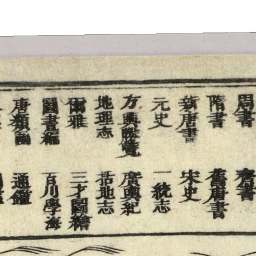 周書　齊書
隋書　舊唐書
新唐書　宋史
元史　一統志
方輿勝覽　廣輿紀
地理志　括地志
爾雅　三才圖繪
圖書編　百川學海
唐類函　通鑑